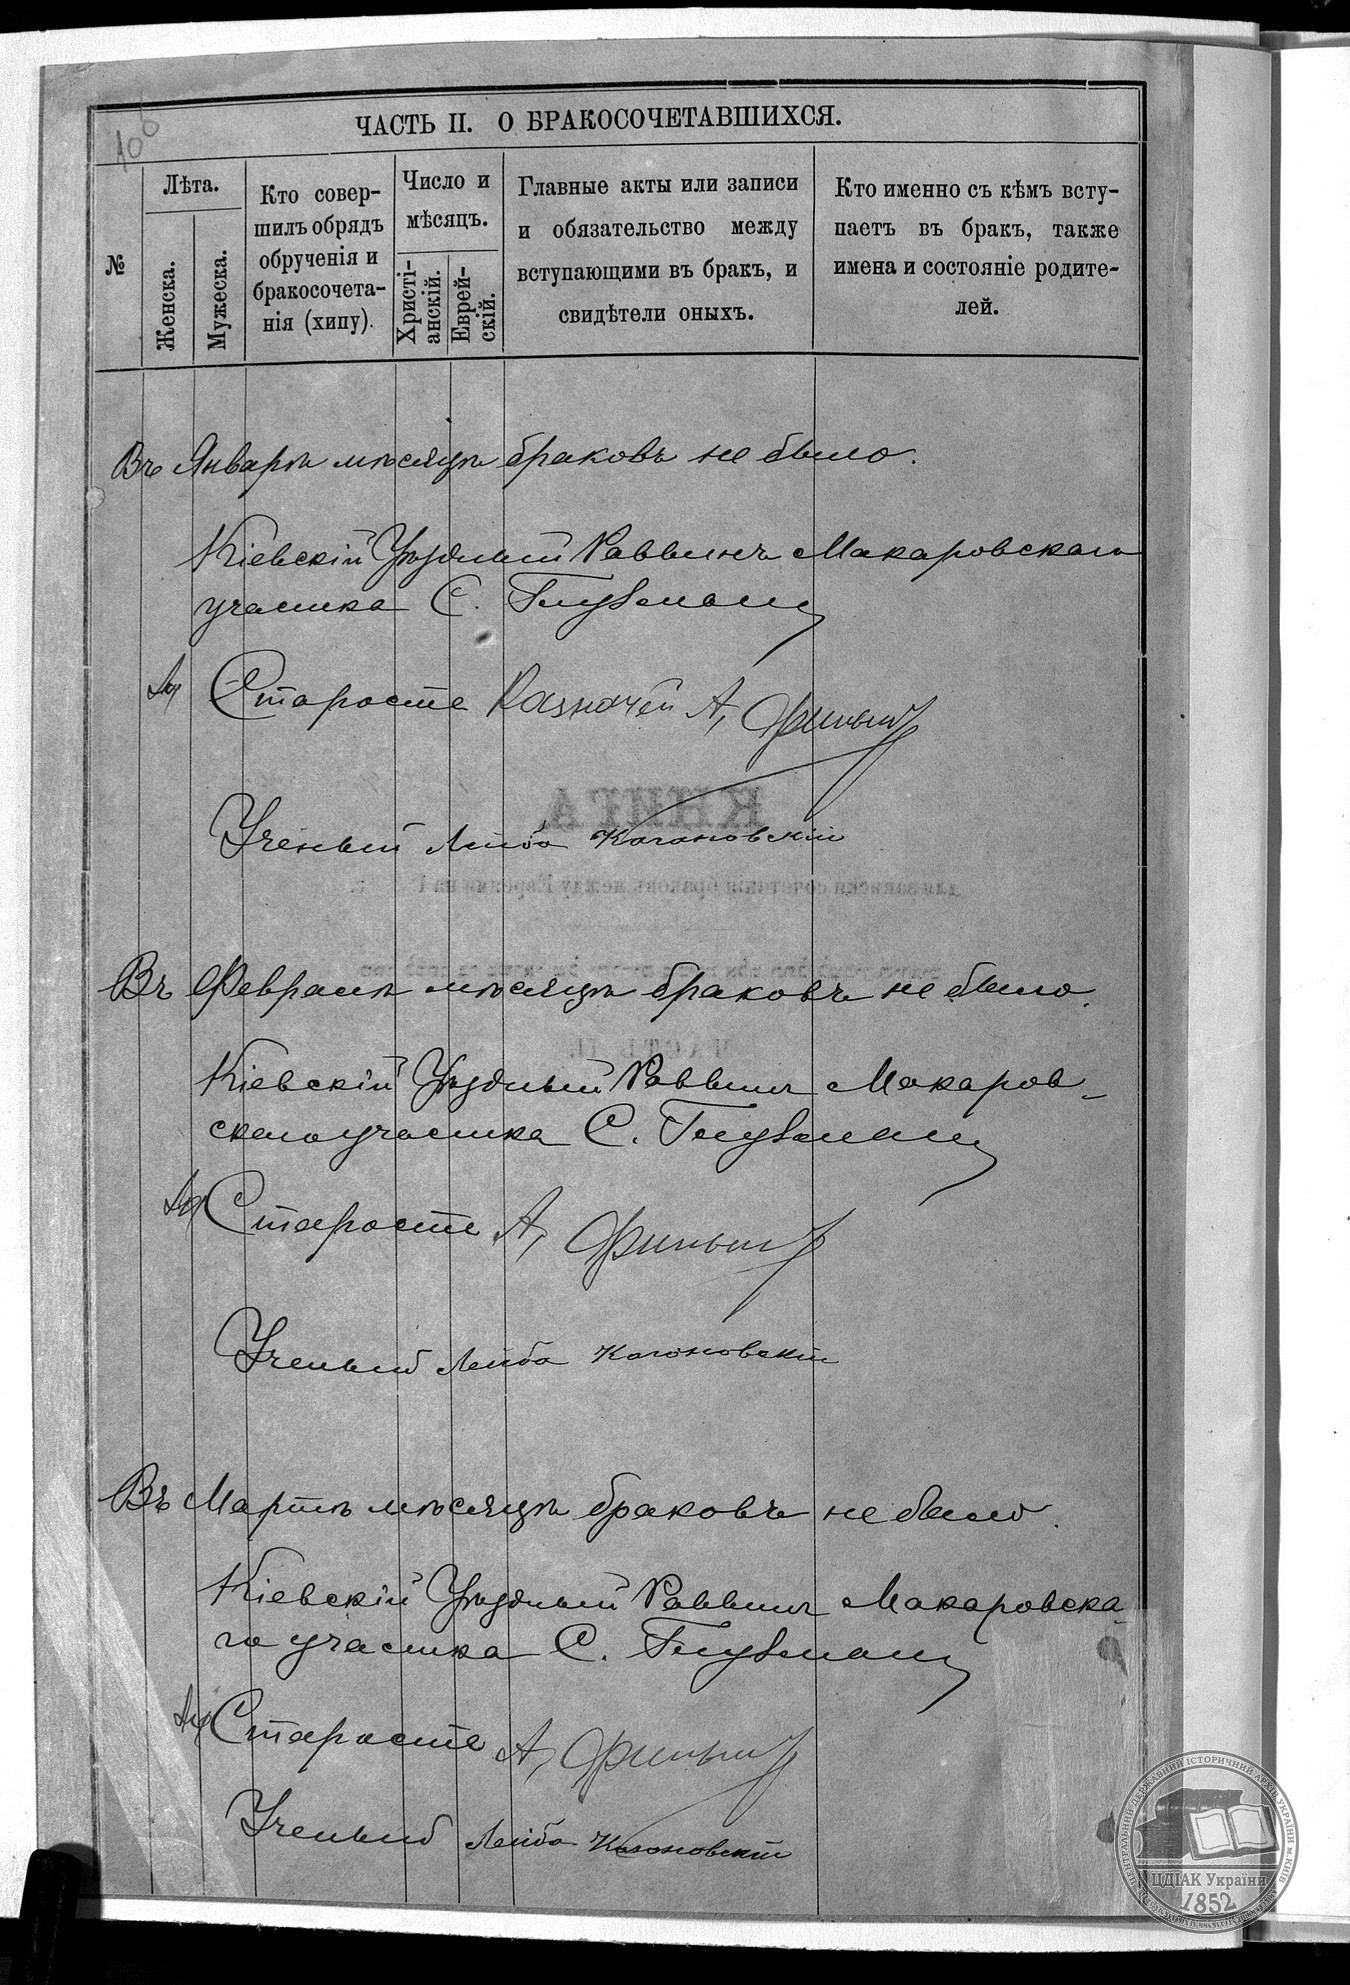 100
ЧАСТЬ II. О БРАКОСОЧЕТАВШИХСЯ.
№
Лѣта.
Женска.
Мужеска.
Кто совер-
шилъ обрядъ
обрученія и
бракосочета-
нія (хипу).
Число и
мѣсяцъ.
Христі-
анскій.
Еврей-
скій.
Главные акты или записи
и обязательство между
вступающими въ бракъ, и
свидѣтели оныхъ.
Кто именно съ кѣмъ всту-
паетъ въ бракъ, также
имена и состояніе родите-
лей.
Въ Январѣ мѣсяцѣ браковъ не было.
Кіевскій Уѣздный Раввинъ Макаровскаго
участка С. Глузманъ
Староста Казначей А,
Ученый Лейба Кагановскій
КНИГА
для записки сочетанія браковъ между Евреями на 1 г.
Въ Февралѣ мѣсяцѣ браковъ не было.
ЧАСТЬ II.
Кіевскій Уѣздный Раввинъ Макаров-
скаго участка С. Глузманъ
Староста А,
Ученый Лейба Кагановскій
Въ Мартѣ мѣсяцѣ браковъ не было.
Кіевскій Уѣздный Раввинъ Макаровска-
го участка С. Глузманъ
Староста А,
Ученый Лейба Кагановскій
ЦЕНТРАЛЬНИЙ ДЕРЖАВНИЙ ІСТОРИЧНИЙ АРХІВ УКРАЇНИ м. КИЇВ
ЦДІАК України
1852